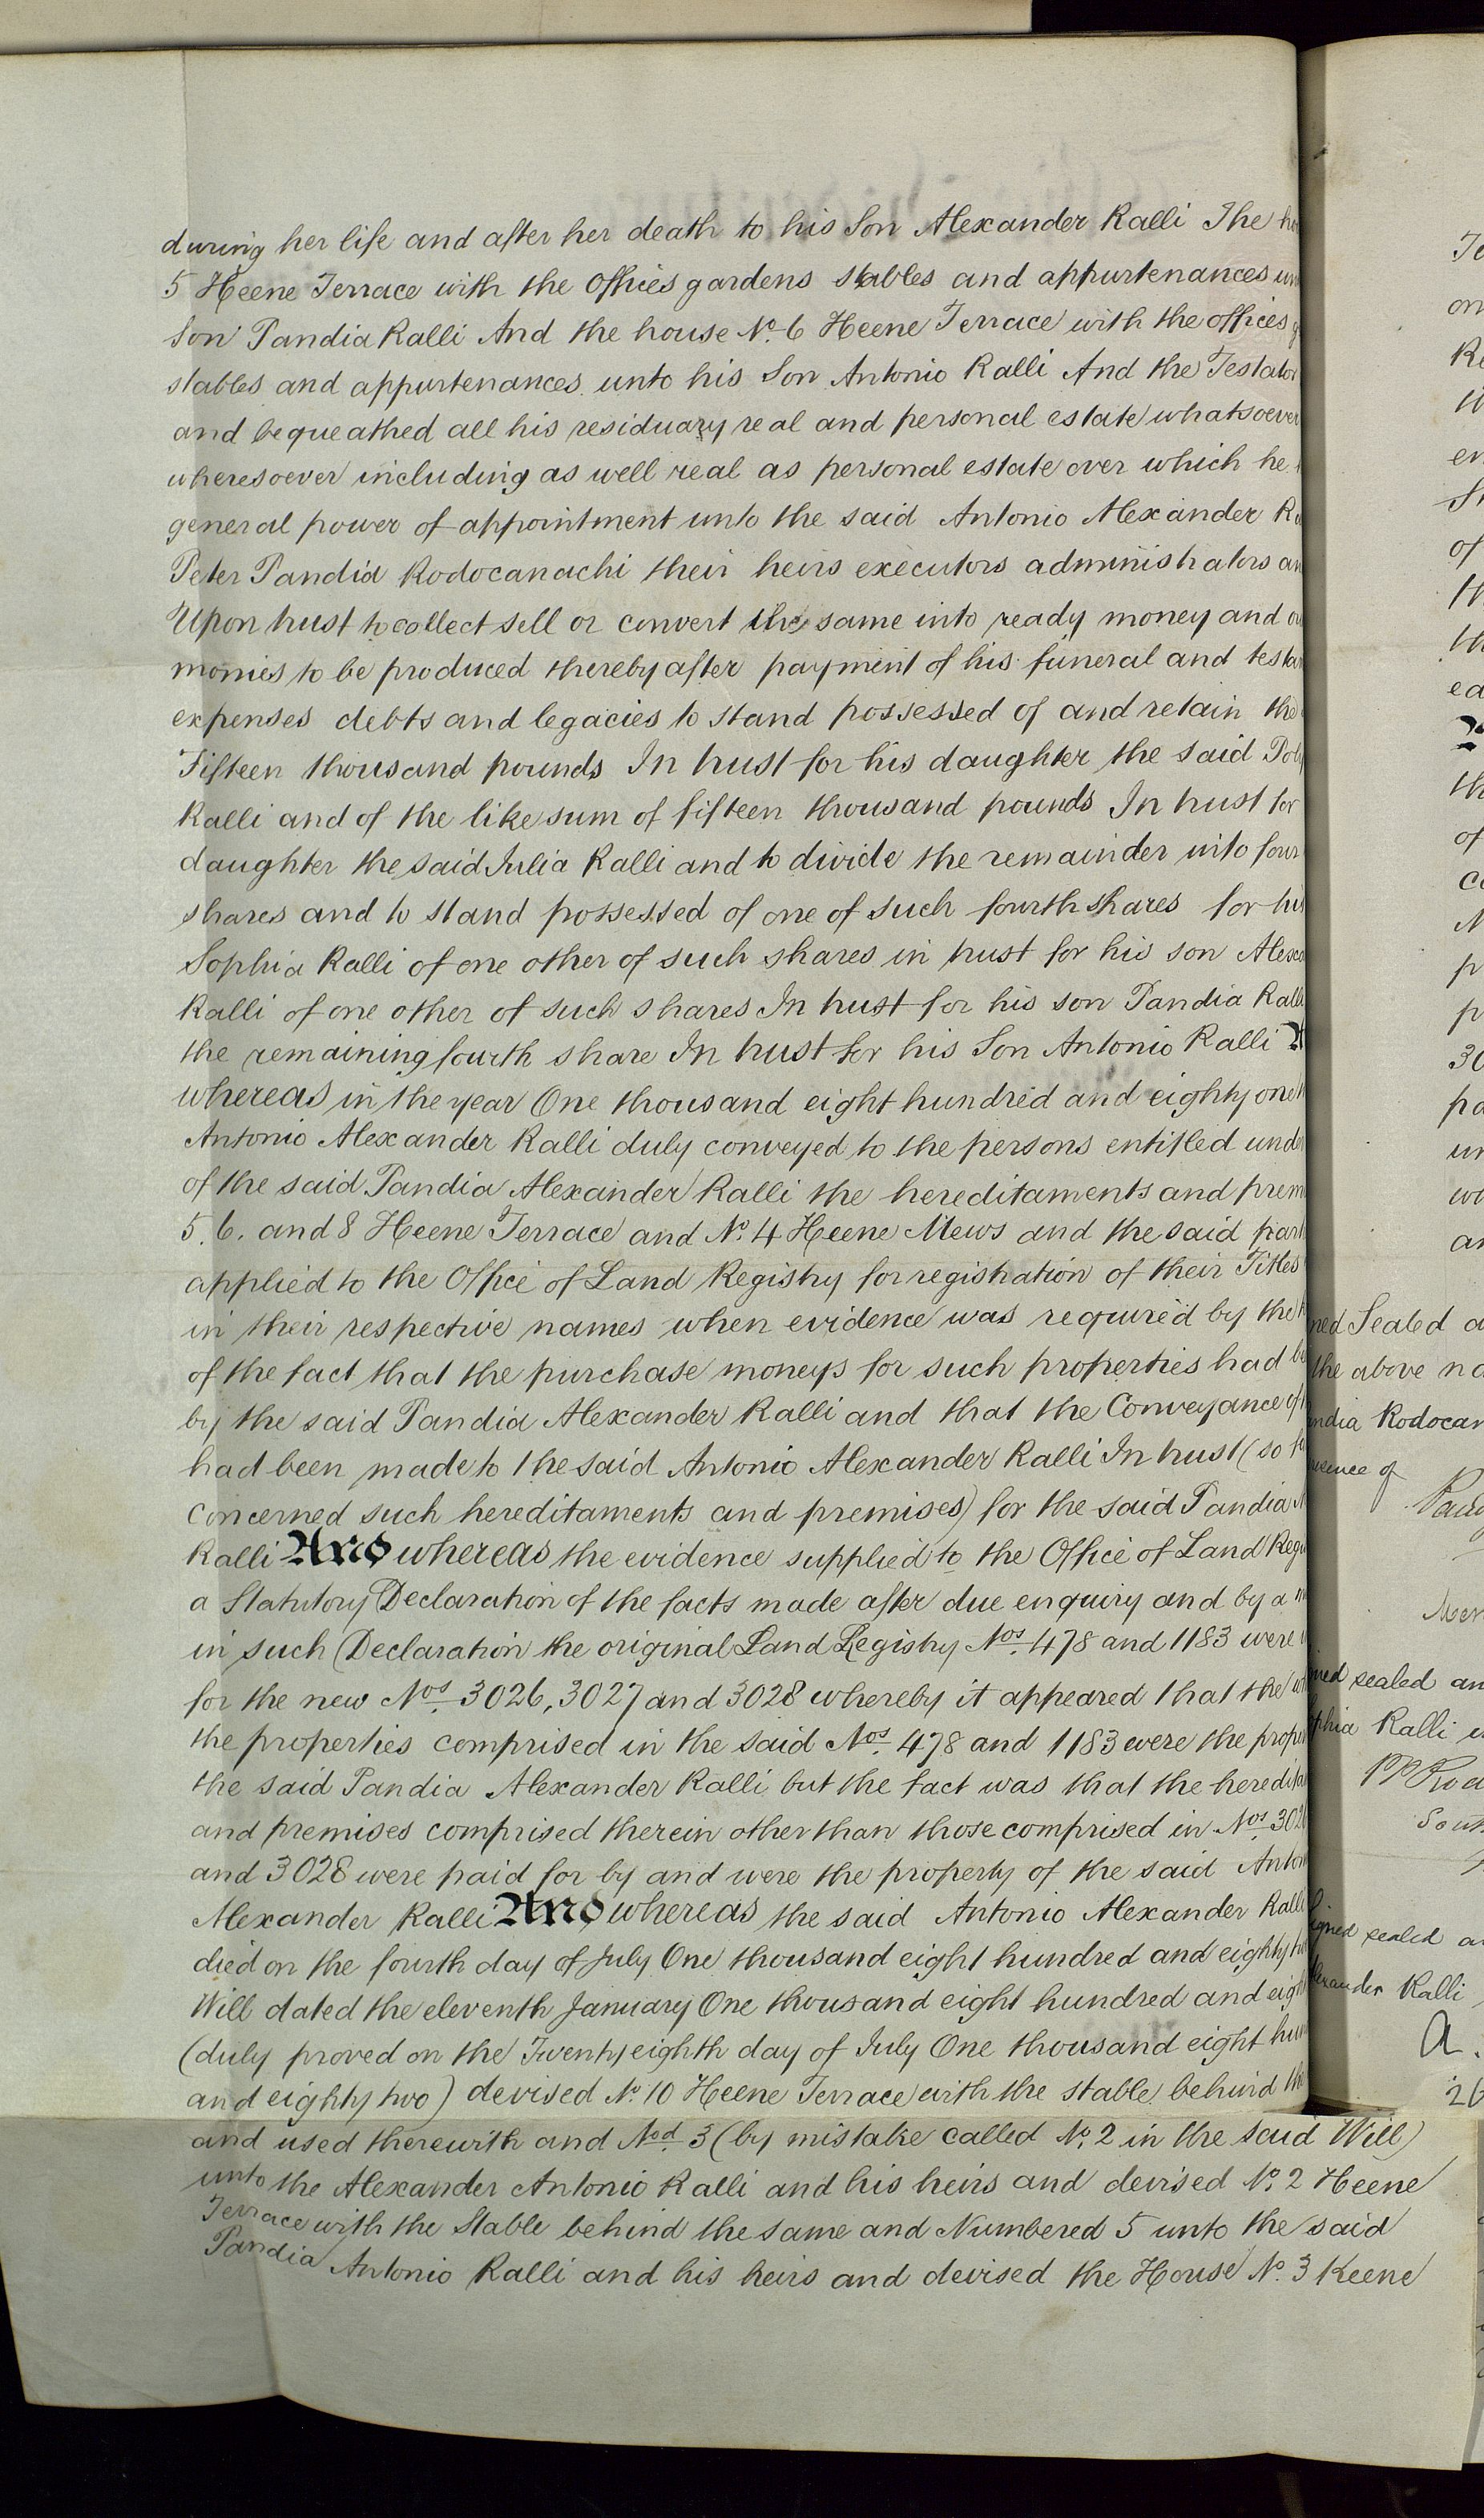 during her life and after her death to his Son Alexander Ralli The
5 Heene Terrace with the Offices gardens stables and appurtenances
Son Pandia Ralli And the house No. 6 Heene Terrace with the offices
stables and appurtenances unto his Son Antonio Ralli And the Testator
and bequeathed all his residuary real and personal estate whatsoever
wheresoever including as well real as personal estate over which he
general power of appointment unto the said Antonio Alexander
Peter Pandia Rodocanachi their heirs executors administrators
Upon trust to collect sell or convert the same into ready money and
monies to be produced thereby after payment of his funeral and
expenses debts and legacies to stand possessed of and retain the
Fifteen thousand pounds In trust for his daughter the said
Ralli and of the like sum of fifteen thousand pounds In trust for
daughter the said Julia Ralli and to divide the remainder into four
shares and to stand possessed of one of such fourth shares for
Sophia Ralli of one other of such shares in trust for his son
Ralli of one other of such shares In trust for his son Pandia
the remaining fourth share In trust for his Son Antonio Ralli
whereas in the year One thousand eight hundred and eighty one
Antonio Alexander Ralli duly conveyed to the persons entitled
of the said Pandia Alexander Ralli the hereditaments and
5. 6. and 8 Heene Terrace and No. 4 Heene Mews and the said
applied to the Office of Land Registry for registration of their Titles
in their respective names when evidence was required by the
of the fact that the purchase moneys for such properties had
by the said Pandia Alexander Ralli and that the Conveyance of
had been made to the said Antonio Alexander Ralli In trust (so
concerned such hereditaments and premises) for the said Pandia
Ralli And whereas the evidence supplied to the Office of Land
a Statutory Declaration of the facts made after due enquiry and by a
in such Declaration the original Land Registry Nos. 478 and 1183 were
for the new Nos. 3026, 3027 and 3028 whereby it appeared that the
the properties comprised in the said Nos. 478 and 1183 were the
the said Pandia Alexander Ralli but the fact was that the
and premises comprised therein other than those comprised in Nos.
and 3028 were paid for by and were the property of the said
Alexander Ralli And whereas the said Antonio Alexander Ralli
died on the fourth day of July One thousand eight hundred and eighty
Will dated the eleventh January One thousand eight hundred and
(duly proved on the Twenty eighth day of July One thousand eight
and eighty two) devised No. 10 Heene Terrace with the stable behind the
and used therewith and Nod. 3 (by mistake called No. 2 in the said Will)
unto the Alexander Antonio Ralli and his heirs and devised No. 2 Heene
Terrace with the Stable behind the same and Numbered 5 unto the said
Pandia Antonio Ralli and his heirs and devised the House No. 3 Keene
Sealed
the above
of
sealed
Ralli
sealed
Ralli